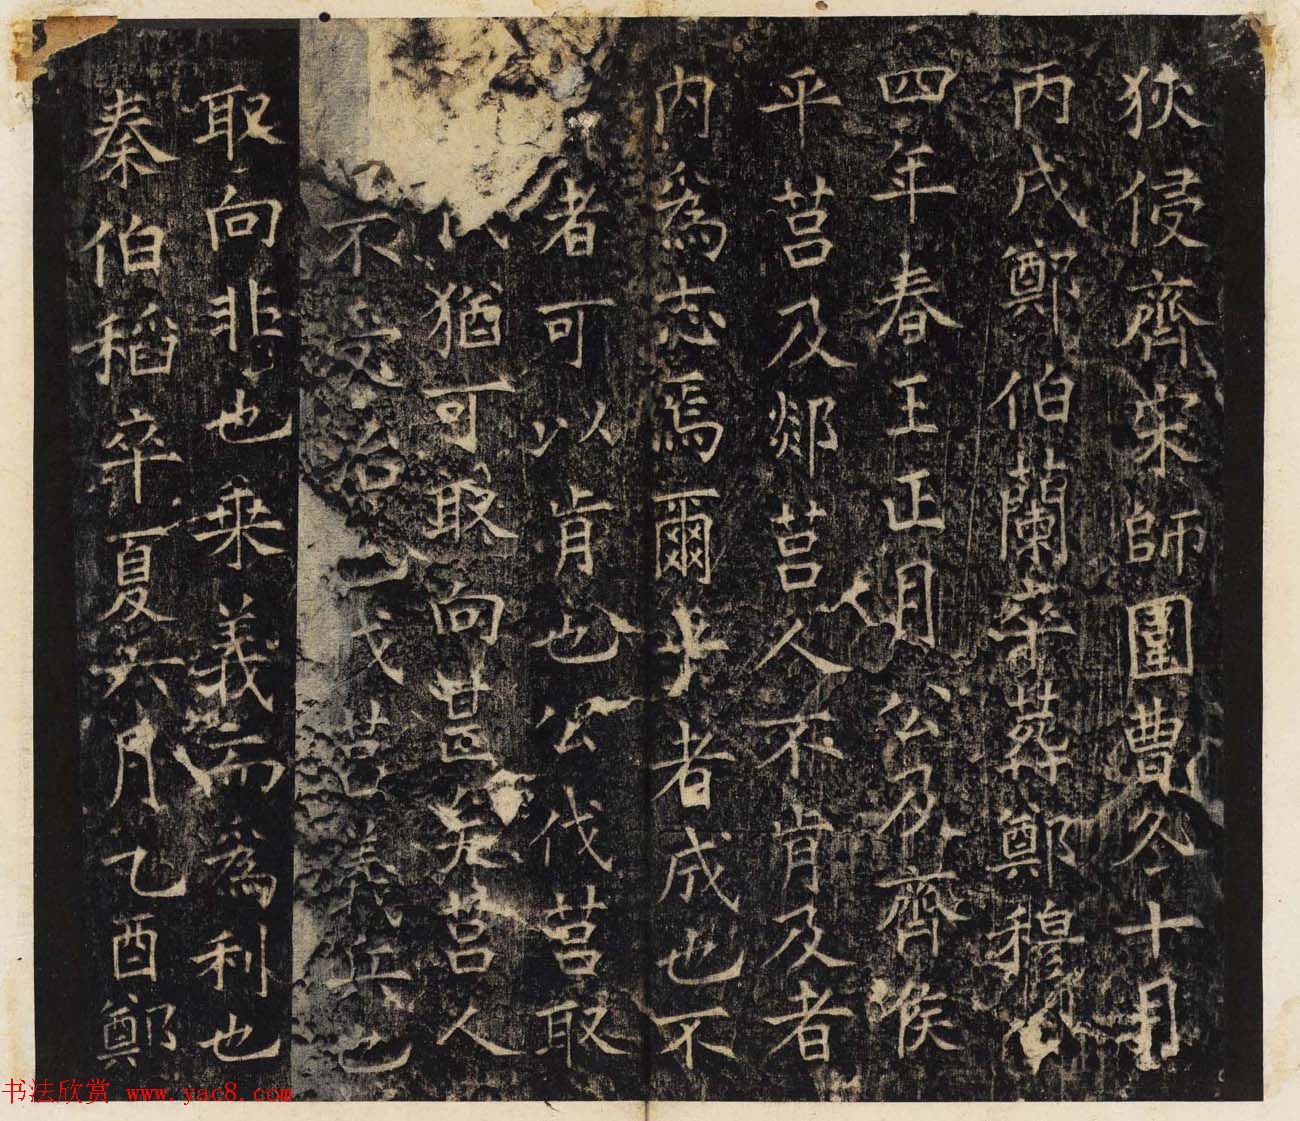 狄侵齊宋師圍曹冬十月
丙戌鄭伯蘭卒葬鄭穆公
四年春王正月公及齊侯
平莒及郯莒人不肯及者
内為志焉爾平者成也不
者可以肯也公伐莒取
猶可取向甚矣莒人
不受治也伐莒義兵也
取向非也乗義而為利也
秦伯稻卒夏六月乙酉鄭
书法欣赏 www.yac8.com